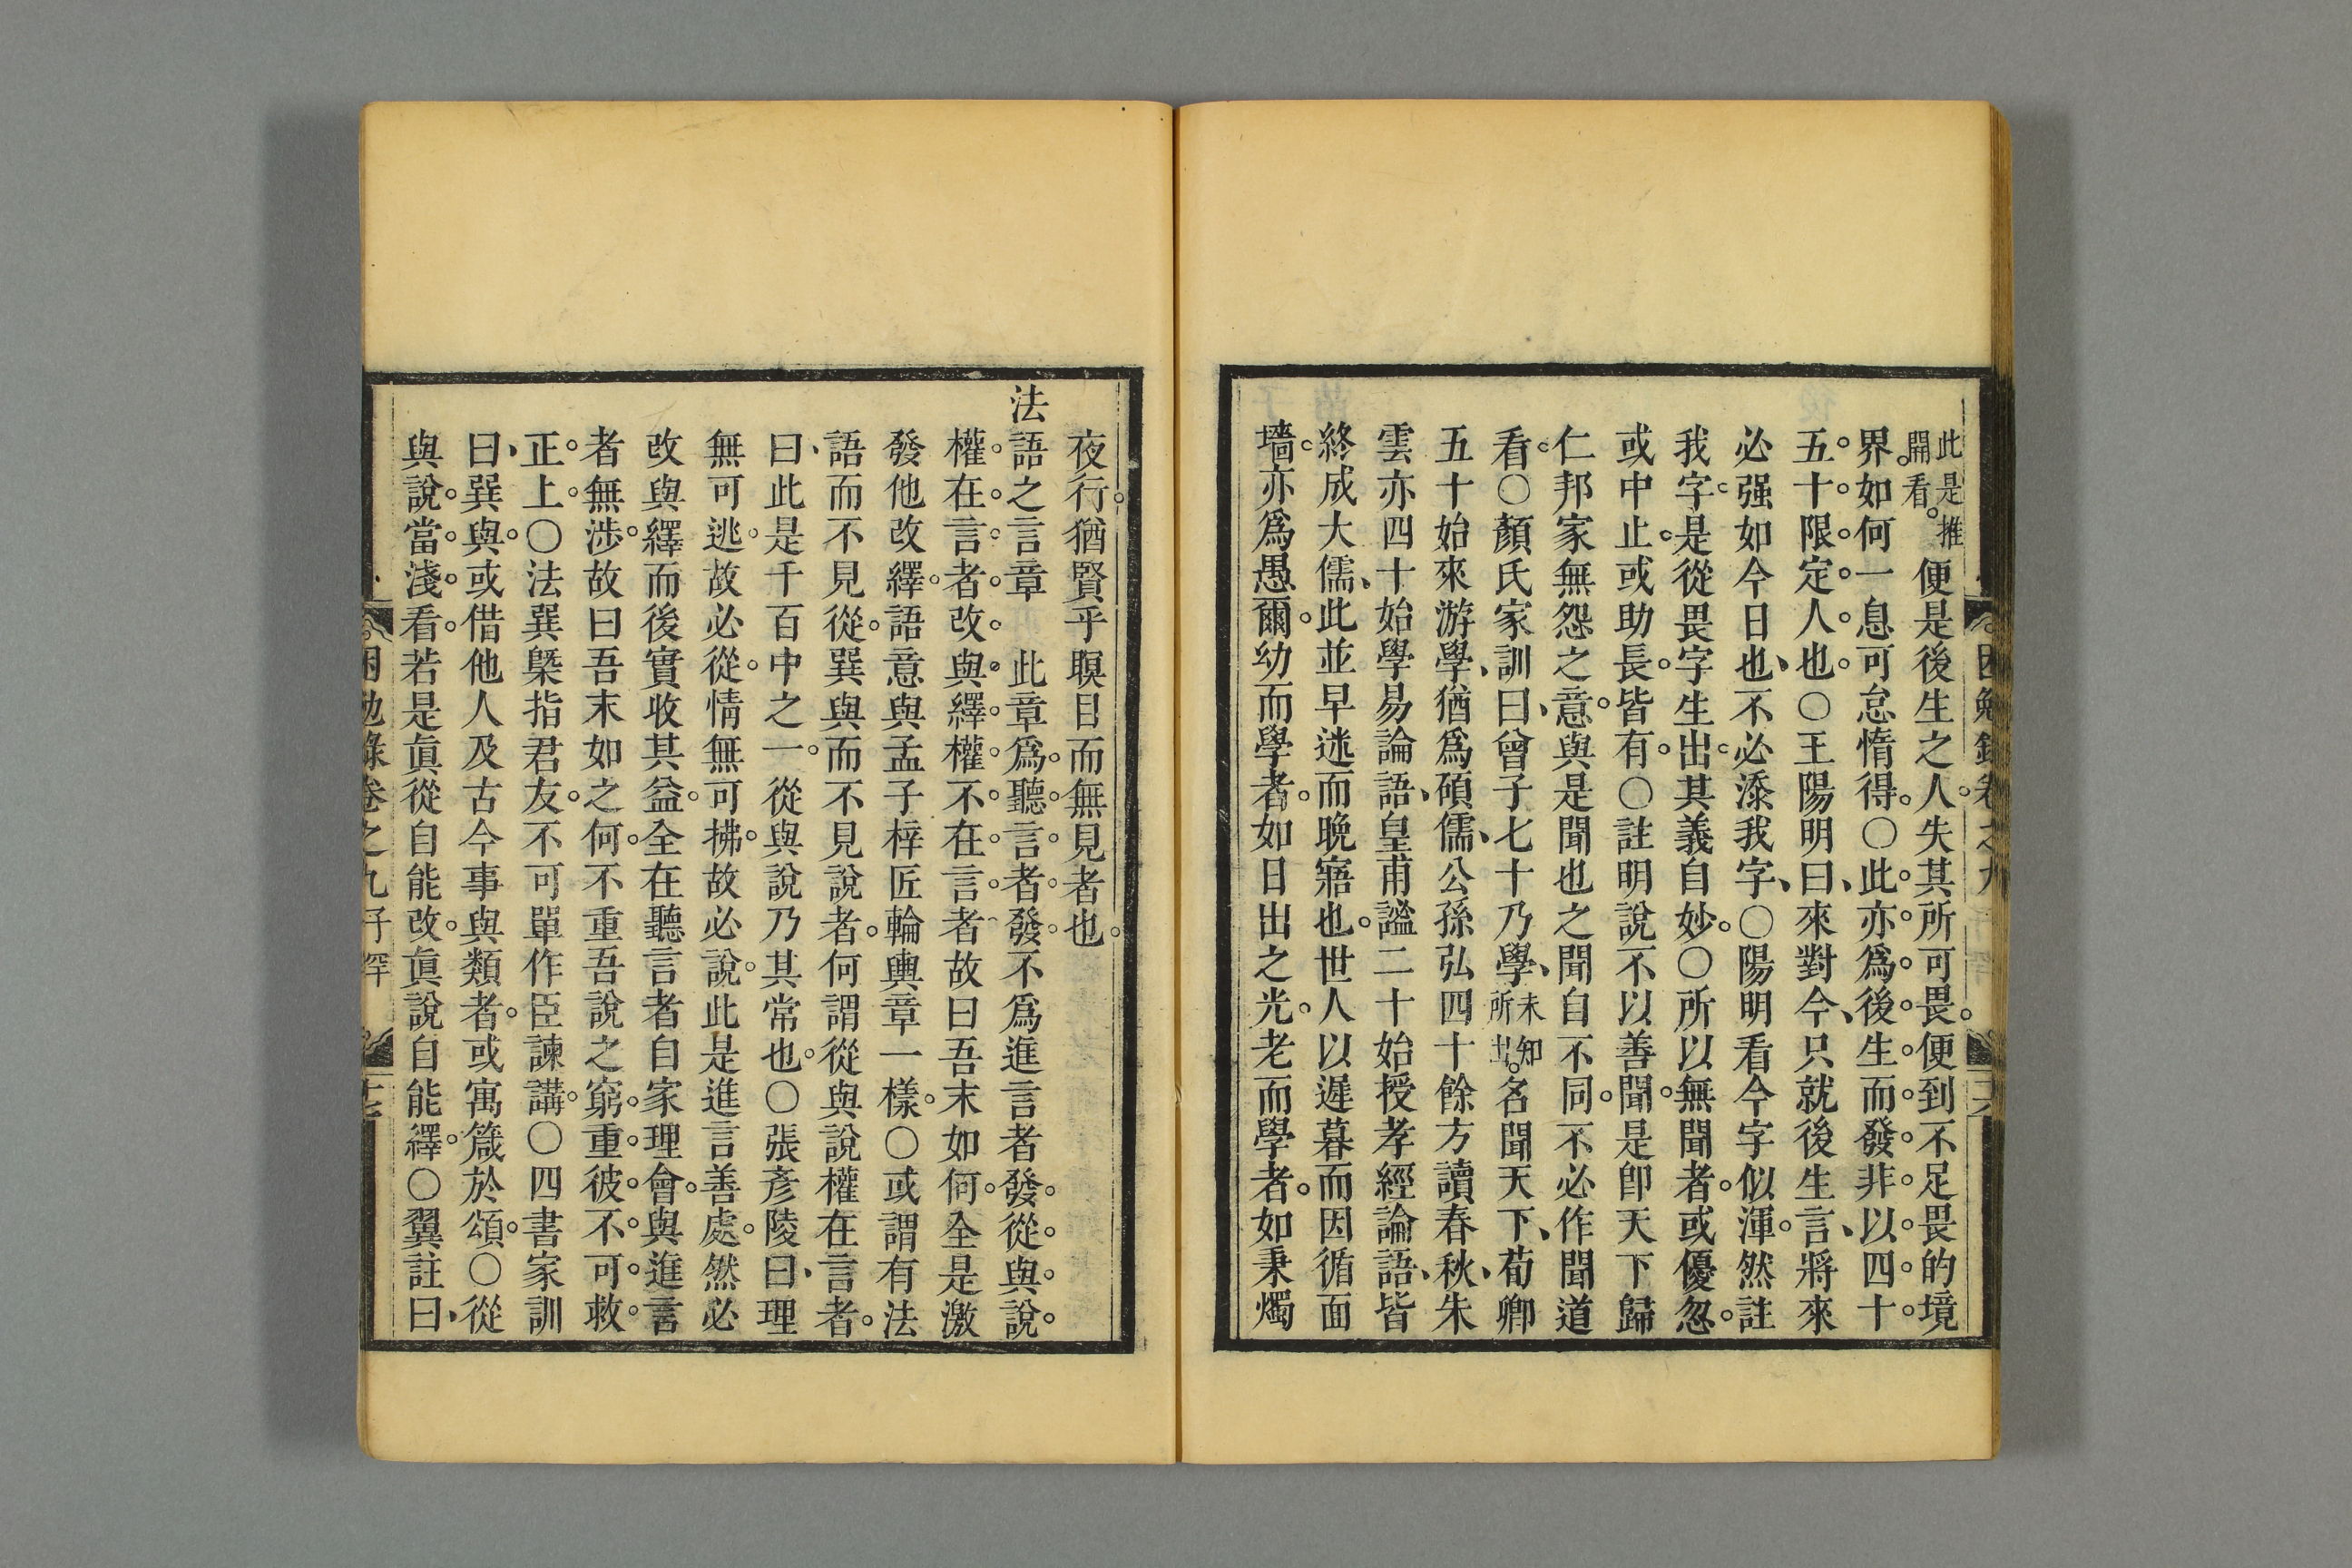 此是推開看。便是後生之人。失其所可畏。便到不足畏的境
界。如何一息可怠惰得。○此亦爲後生而發。非以四十
五十限定人也。○王陽明曰、來對今、只就後生言、將來
必强如今日也、不必添我字、○陽明看今字似渾。然註
我字。是從畏字生出。其義自妙。○所以無聞者。或優忽。
或中止。或助長。皆有。○註明說不以善聞。是卽天下歸
仁邦家無怨之意。與是聞也之聞自不同。不必作聞道
看。○顏氏家訓曰、曾子七十乃學、未知所出。名聞天下、荀卿
五十始來游學、猶爲碩儒、公孫弘四十餘方讀春秋、朱
雲亦四十始學易論語、皇甫謐二十始授孝經論語、皆
終成大儒、此並早迷而晚寤也。世人以遲暮而因循面
墻。亦爲愚爾。幼而學者。如日出之光。老而學者。如秉燭
夜行。猶賢乎暝目而無見者也。
法語之言章　此章爲聽言者發。不爲進言者發。從。與。說。
權。在。言。者。改。與。繹。權。不。在。言。者。故曰吾末如何。全是激
發他改繹。語意與孟子梓匠輪輿章一樣。○或謂有法
語而不見從。巽與而不見說者。何謂從與說權在言者。
曰、此是千百中之一。從與說乃其常也。○張彥陵曰、理
無可逃。故必從。情無可拂。故必說。此是進言善處。然必
改與繹而後實收其益。全在聽言者自家理會。與進言
者無涉。故曰吾末如之何。不重吾說之窮。重彼不可救
正。上。○法巽槩指君友。不可單作臣諫講。○四書家訓
曰、巽與。或借他人及古今事與類者。或寓箴於頌。○從
與說。當淺看。若是眞從自能改。眞說自能繹。○翼註曰、
困勉錄卷之九
困勉錄卷之九
十七